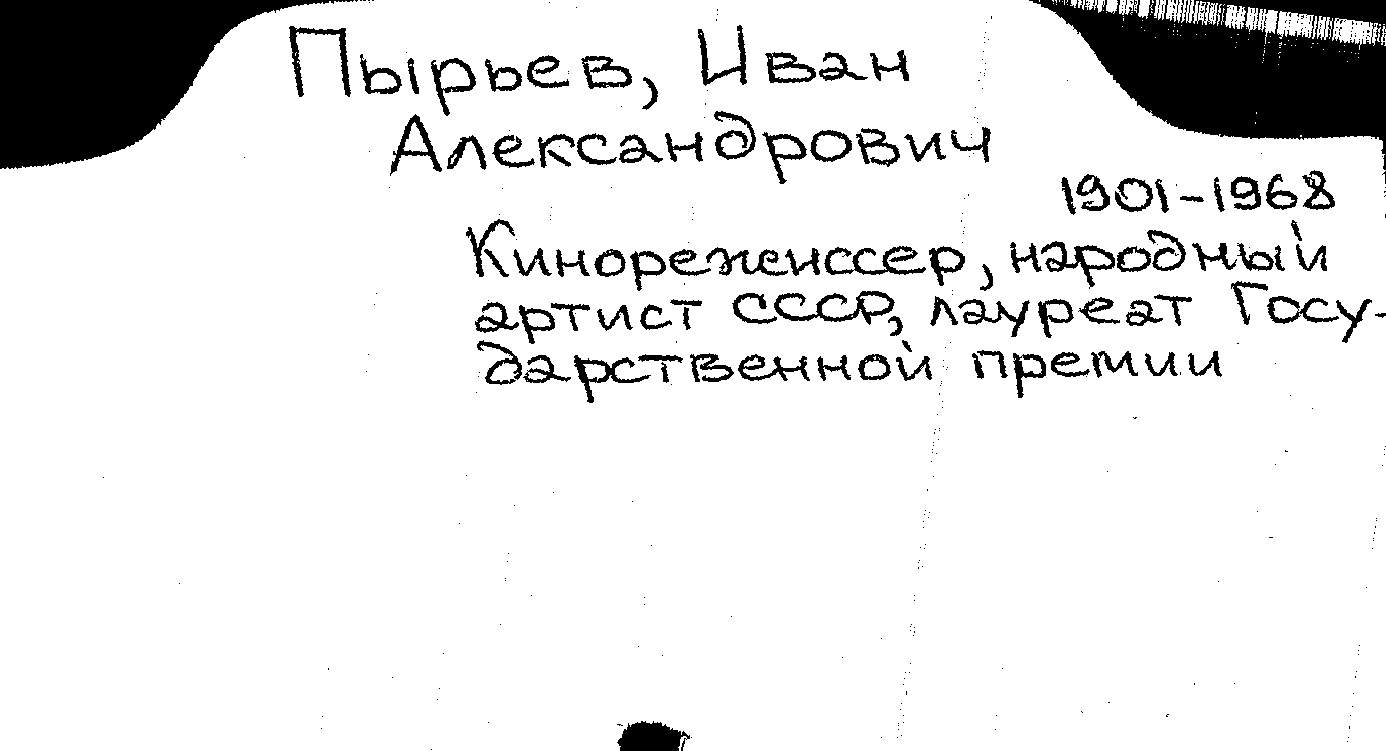 Пырьев, Иван
Александрович
1901-1968
Кинорежиссер, народный
артист СССР, лауреат Госу-
дарственной премии